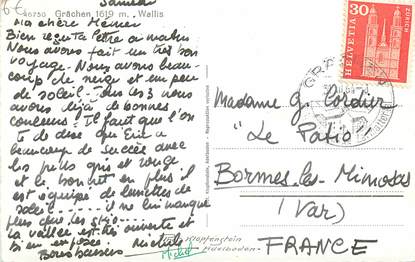 6€
40730 Grächen 1619 m. Wallis
Samedi
Ma chère Mémée
Bien reçu ta lettre ce matin
Nous avons fait un très bon
voyage. Nous avons beau-
coup de neige et un peu
de soleil. Tous les 3 nous
avons déjà de bonnes
couleurs. Il faut que l'on
te dise que Eric a
beaucoup de succès avec
les pulls gris et rouge
et le bonnet en plus il
est équipé de lunettes de
soleil il ne lui manque
plus que les skis
La vallée est très ouverte et
bien exposée.
Bons baisers
Klopfenstein
Adelboden
HELVETIA
30
ZÜRICH
GRÄCHEN
Madame G. Cordier
"Le Patio"
Bormes les Mimosas
(Var)
FRANCE